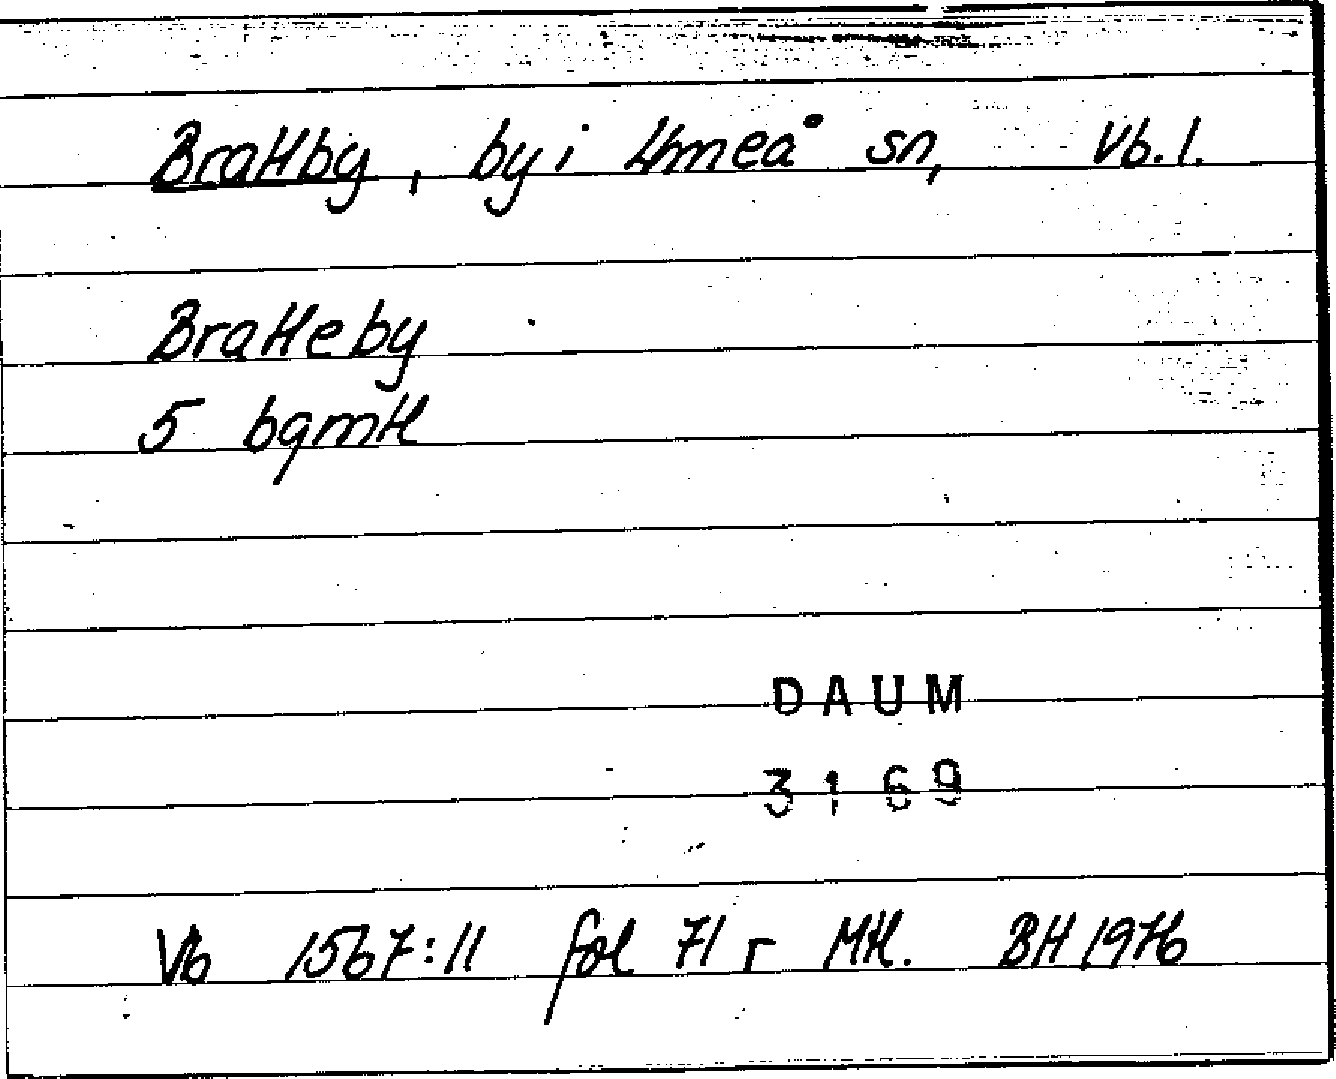 Brattby, by i Umeå sn, Vb. l.
Bratteby
5 bgmtl
DAUM
3169
Vb 1567:11 fol 71 r Mtl. BH 1976